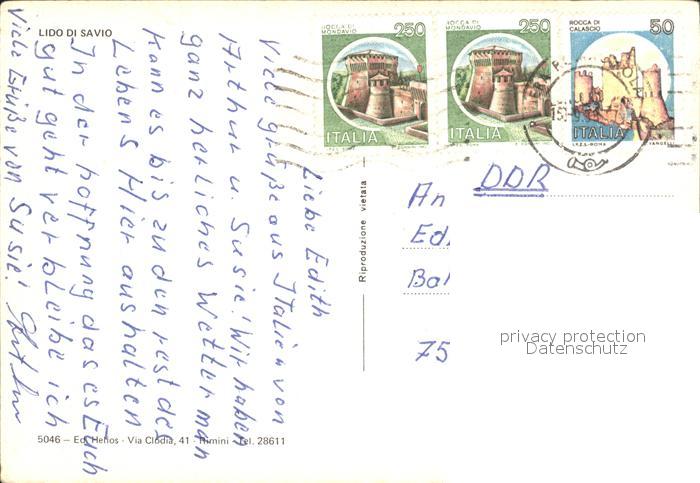 LIDO DI SAVIO
ROCCA DI MONDAVIO
250
ITALIA
ROCCA DI MONDAVIO
250
ITALIA
ROCCA DI CALASCIO
50
ITALIA
I.P.Z.S.-ROMA
Liebe Edith
Viele grüße aus Italien von
Arthur u. Susie! Wir haben
ganz herliches Wetter man
kann es bis zu den rest des
Lebens Hier aushalten
In der hoffnung das es Euch
gut geht verbleibe ich
Viele Grüße von Susie!
Riproduzione vietata
DDR
An
Ed
Bal
75
privacy protection
Datenschutz
5046 – Ed. Helios - Via Clodia, 41 - Rimini - Tel. 28611